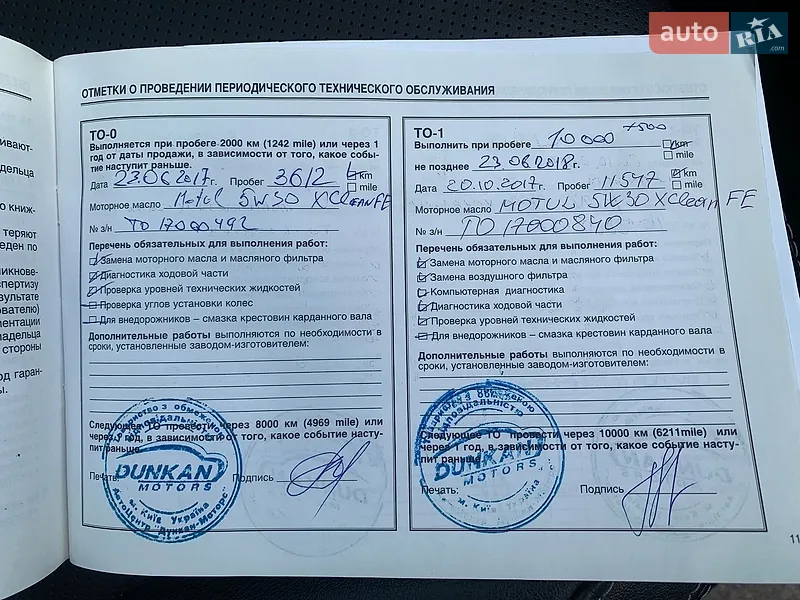 auto RIA .com
ОТМЕТКИ О ПРОВЕДЕНИИ ПЕРИОДИЧЕСКОГО ТЕХНИЧЕСКОГО ОБСЛУЖИВАНИЯ
ТО-0
Выполняется при пробеге 2000 км (1242 mile) или через 1
год от даты продажи, в зависимости от того, какое собы-
тие наступит раньше.
Дата 23.06.2017г. Пробег 3612 km
mile
Моторное масло Motul 5W30 XClean FE
№ з/н ТО 17000492
Перечень обязательных для выполнения работ:
Замена моторного масла и масляного фильтра
Диагностика ходовой части
Проверка уровней технических жидкостей
Проверка углов установки колес
Для внедорожников – смазка крестовин карданного вала
Дополнительные работы выполняются по необходимости в
сроки, установленные заводом-изготовителем:
Следующее ТО провести через 8000 км (4969 mile) или
через 1 год, в зависимости от того, какое событие насту-
пит раньше.
Печать: Подпись
DUNKAN
MOTORS
м. Київ Україна
Автоцентр "Дункан-Моторс"
ТО-1
Выполнить при пробеге 10000 +500 km
mile
не позднее 23.06.2018г.
Дата 20.10.2017г. Пробег 11547 km
mile
Моторное масло MOTUL 5W30 XClean FE
№ з/н ТО 17000840
Перечень обязательных для выполнения работ:
Замена моторного масла и масляного фильтра
Замена воздушного фильтра
Компьютерная диагностика
Диагностика ходовой части
Проверка уровней технических жидкостей
Для внедорожников – смазка крестовин карданного вала
Дополнительные работы выполняются по необходимости в
сроки, установленные заводом-изготовителем:
Следующее ТО провести через 10000 км (6211mile) или
через 1 год, в зависимости от того, какое событие насту-
пит раньше.
Печать: Подпись
DUNKAN
MOTORS
м. Київ Україна
11